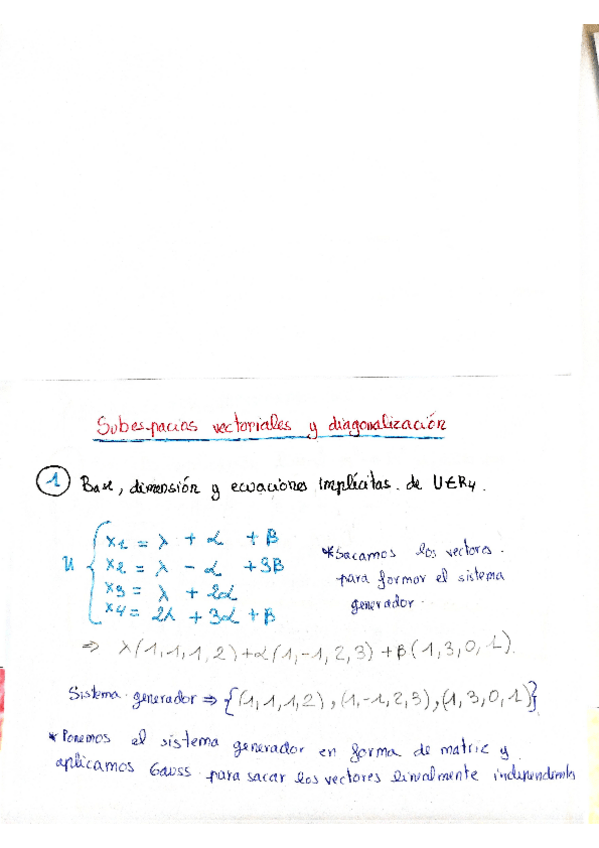 Subespacios vectoriales y diagonalización
1 Base, dimensión y ecuaciones implícitas. de U∈R4.
U { x1 = λ + α + β
x2 = λ - α + 3β
x3 = λ + 2α
x4 = 2λ + 3α + β
*Sacamos los vectores.
para formar el sistema
generador.
⇒ λ(1,1,1,2)+α(1,-1,2,3)+β(1,3,0,1).
Sistema generador ⇒ {(1,1,1,2),(1,-1,2,3),(1,3,0,1)}
* Ponemos el sistema generador en forma de matriz y
aplicamos Gauss para sacar los vectores linealmente independientes